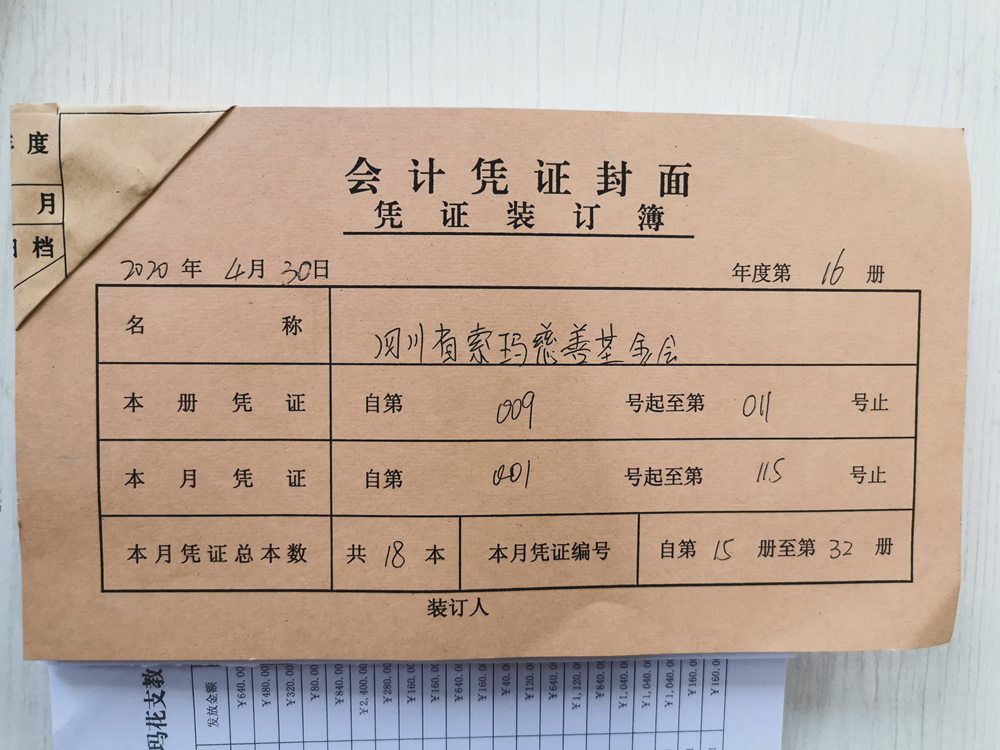 度
月
档
会计凭证封面
凭证装订簿
2020年 4月 30日 年度第 16 册
名称 四川省索玛慈善基金会
本册凭证 自第 009 号起至第 011 号止
本月凭证 自第 001 号起至第 115 号止
本月凭证总本数 共 18 本 本月凭证编号 自第 15 册至第 32 册
装订人
玛花支教
发放金额
¥640.00
¥480.00
¥320.00
¥80.00
¥840.00
¥2,400.00
¥280.00
¥160.00
¥160.00
¥640.00
¥160.00
¥40.00
¥120.00
¥640.00
¥1,120.00
¥840.00
¥1,040.00
¥1,040.00
¥1,040.00
¥160.00
¥160.00